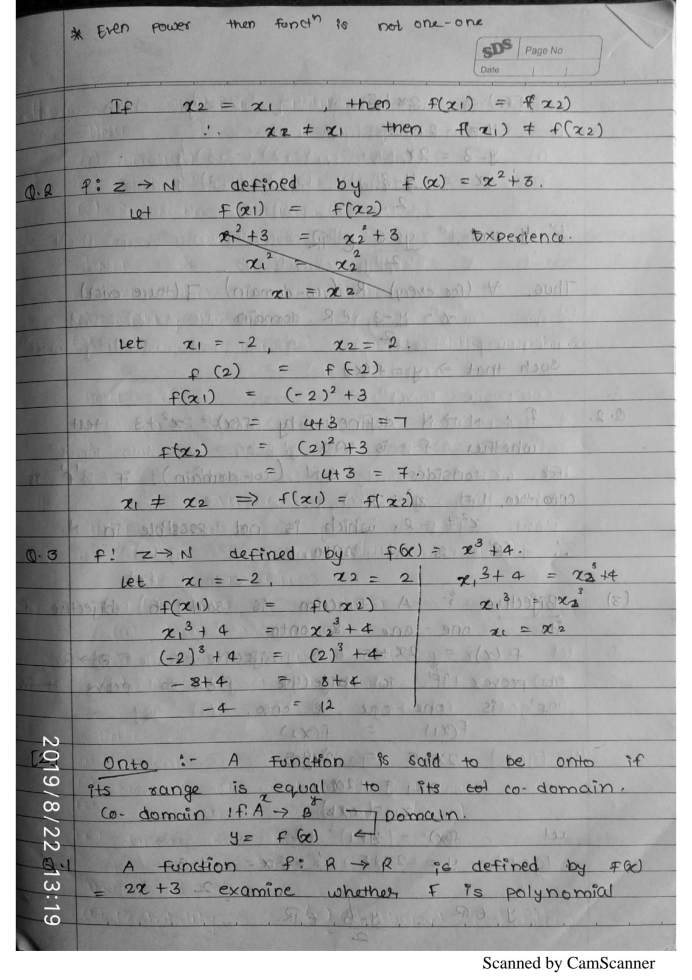 * Even power then functⁿ is not one-one
SDS Page No
Date
If x2 = x1 , then f(x1) = f(x2)
∴ x2 ≠ x1 then f(x1) ≠ f(x2)
Q.2 f: Z → N defined by f(x) = x² + 3.
Let f(x1) = f(x2)
x1² + 3 = x2² + 3 Experience.
x1² = x2²
x1 = x2
Let x1 = -2, x2 = 2.
f(2) = f(-2)
f(x1) = (-2)² + 3
= 4+3 = 7
f(x2) = (2)² + 3
= 4+3 = 7.
x1 ≠ x2 ⟹ f(x1) = f(x2)
Q.3 f: Z → N defined by f(x) = x³ + 4.
Let x1 = -2, x2 = 2 x1³ + 4 = x2³ + 4
f(x1) = f(x2) x1³ = x2³
x1³ + 4 = x2³ + 4 x1 = x2
(-2)³ + 4 = (2)³ + 4
-8+4 = 8+4
-4 = 12
[2] Onto :- A function is said to be onto if
its range is equal to its co-domain.
Co-domain if: A → B Domain.
x y
y = f(x)
Q.1 A function f: R → R is defined by f(x)
= 2x + 3 examine whether F is polynomial
2019/8/22 13:19
Scanned by CamScanner